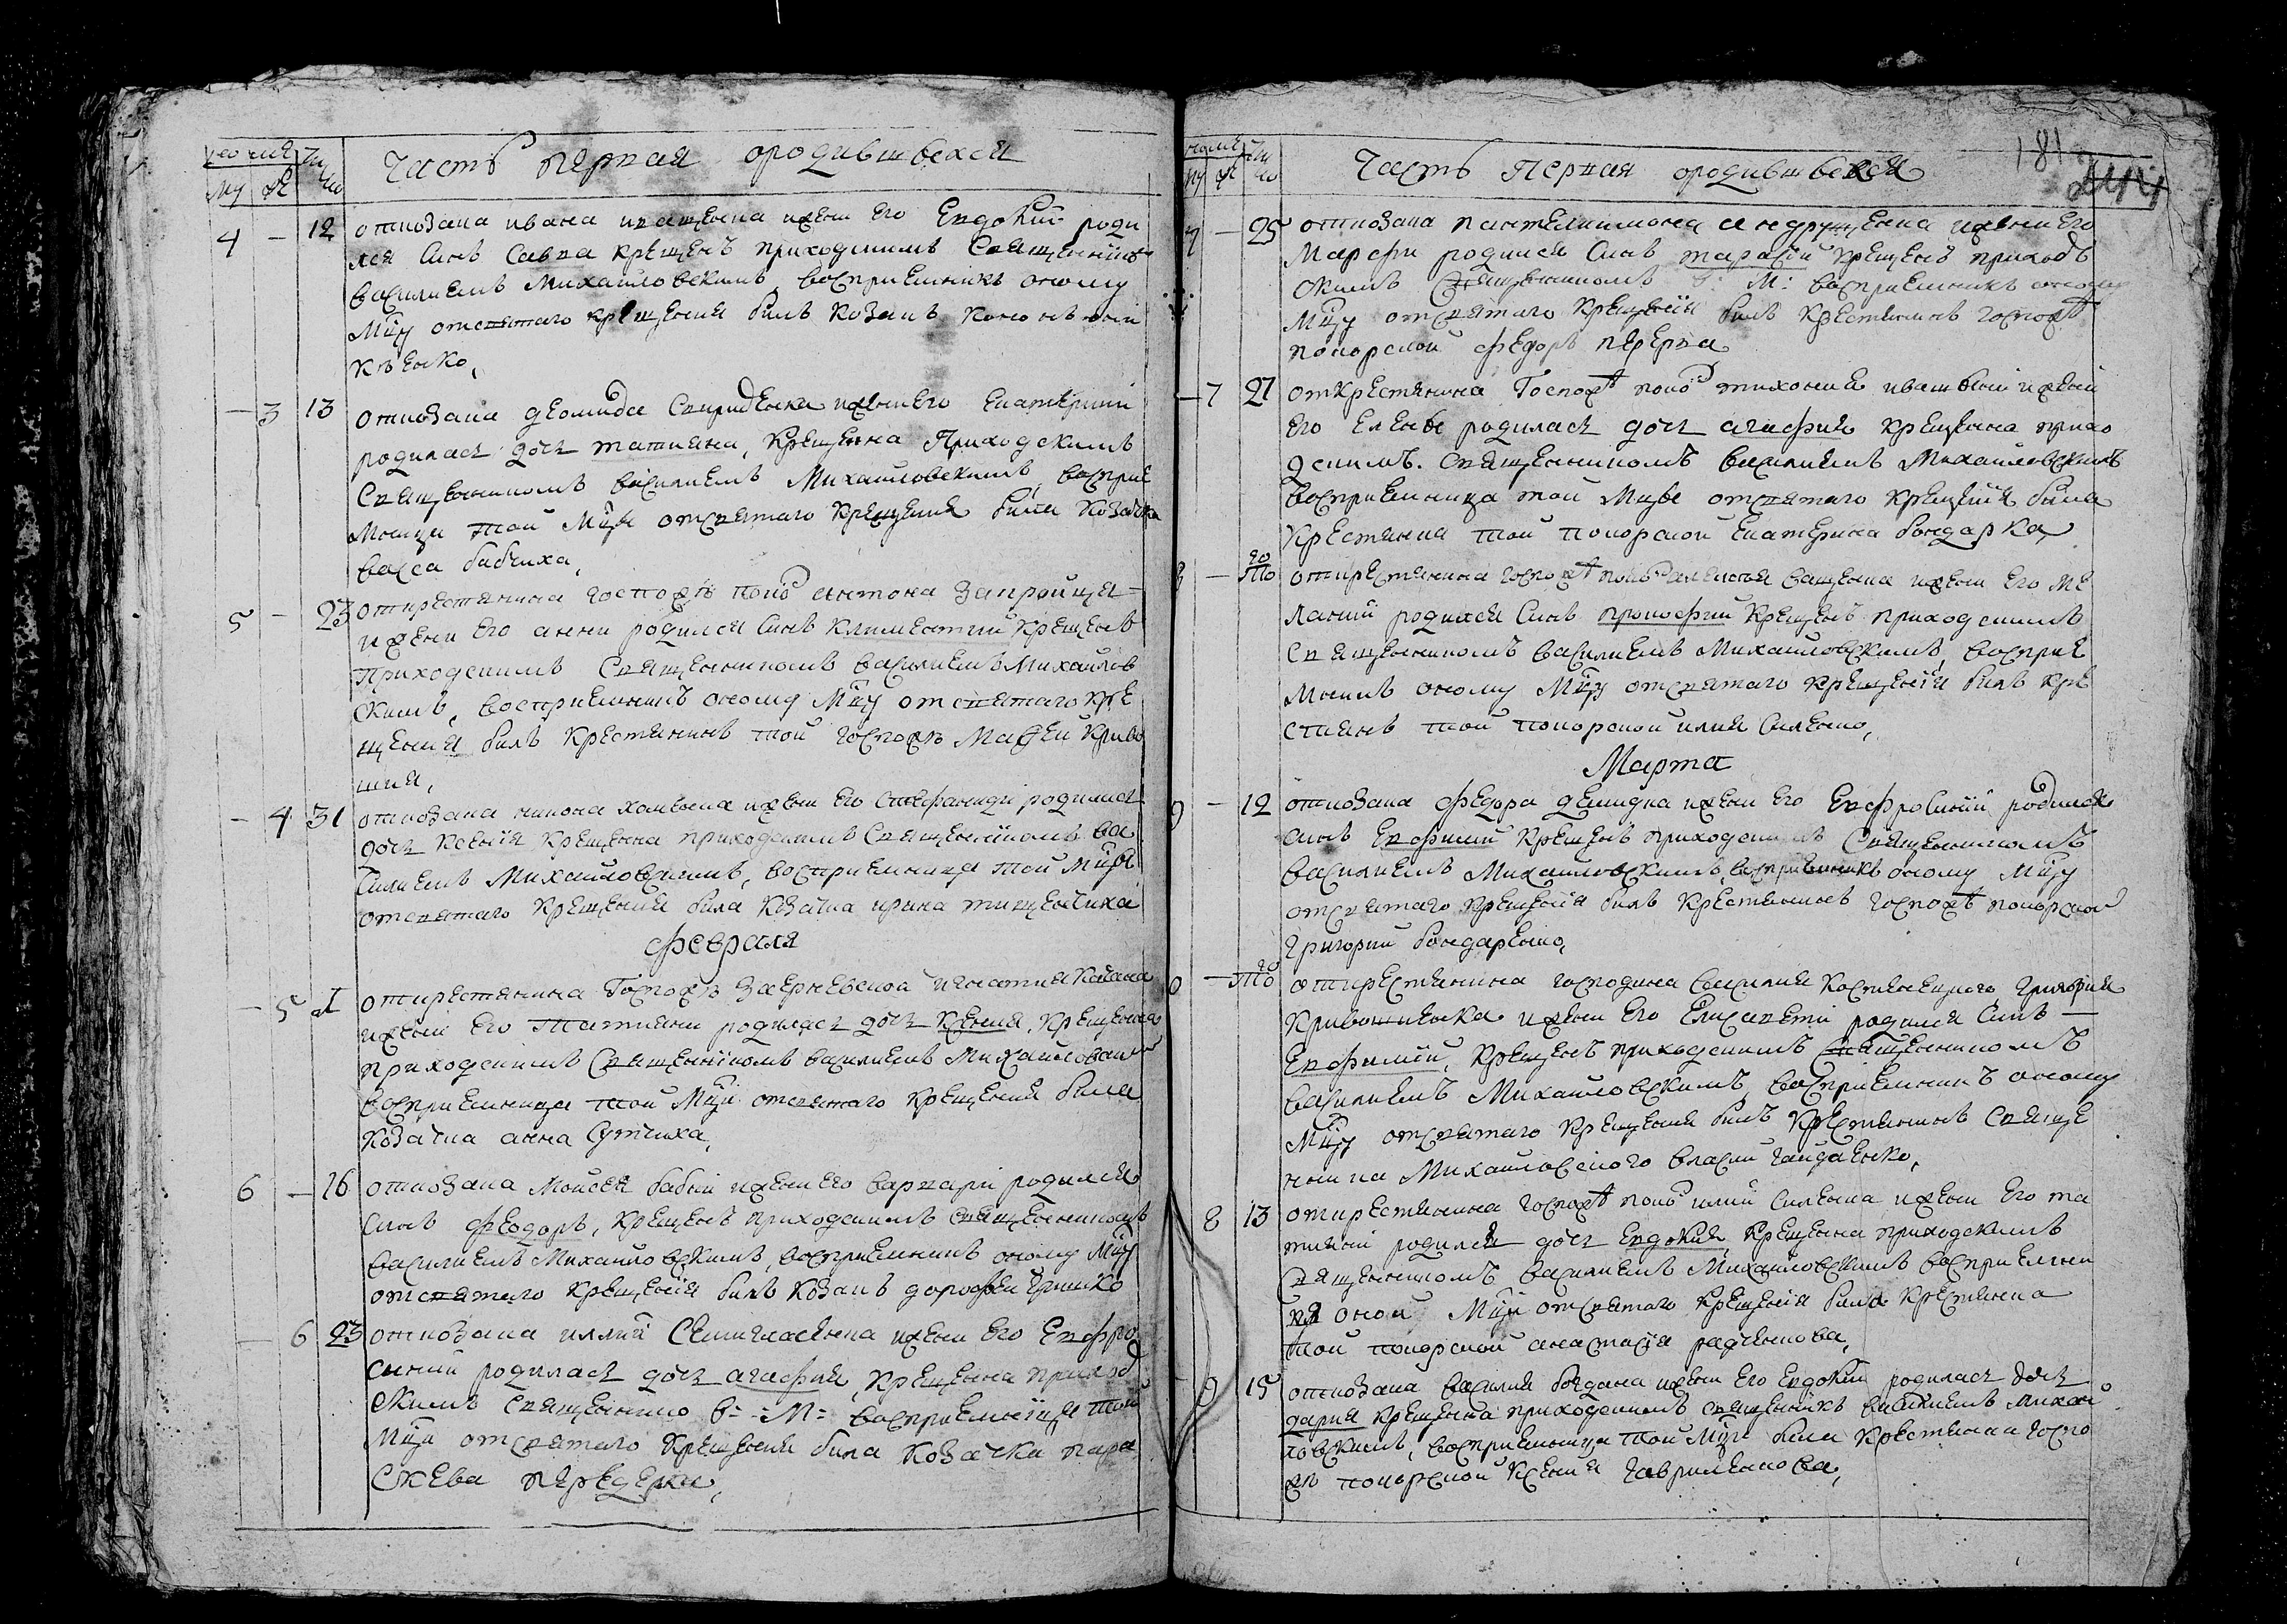 Часть первая ородившвехся
4 – 12 откозака ивана иващенка ижени его Евдокии роди
лся синъ Савва крещенъ приходскимъ Священникъ
василиемъ Михайловскимъ, восприемникъ оному
Мцу отсвятаго крещения билъ козакъ
кѣенко,
– 3 13 откозака деомида Спириденка ижени его Екатерини
родилась дочь татияна, крещенна Приходскимъ
Священникомъ василиемъ Михайловскимъ, восприе
мница той Мцы отсвятаго крещения била козачка
васса бабчиха,
5 – 23 открестянина госпожѣ покор антона
ижени его анни родился синъ климентий крещенъ
Приходскимъ Священникомъ василиемъ Михайлов
скимъ, восприемникъ оному Мцу отсвятаго кре
щения билъ крестянинъ той госпожѣ Матѳеи криво
шия,
– 4 31 откозака никона хоменка ижени его Стефаниди родилась
дочь ксения крещенна приходскимъ Священникомъ ва
силиемъ Михайловскимъ, восприемница той Мцы
отсвятаго крещения била козачка ирина тищенчиха
февраля
– 5 1 открестянина Госпожѣ игнатия качана
ижени его Татияни родилась дочь ксения, крещенна
приходскимъ Священникомъ василиемъ Михайловски
восприемница той Мцы отсвятаго крещения била
козачка анна Сутчиха,
6 – 16 откозака Моисея бабки ижени его варвари родился
синъ феодоръ, крещенъ приходскимъ священникомъ
василиемъ Михайловскимъ, восприемникъ оному Мцу
отсвятаго крещения билъ козакъ дорофеи гришко
– 6 23 откозака иллии Семигласенка ижени его Евфро
синии родилась дочь агафия, крещенна приход
скимъ священнико В: М: восприемница той
Мцы отсвятаго крещения била козачка пара
скева передерка,
181
Часть Первая ородившвехся
7 – 25 откозака пантелиимона андрущенка ижени его
Марфи родился синъ тарасий крещенъ приход
скимъ священникомъ В: М: восприемникъ оному
Мцу отсвятаго крещения билъ крестянинъ госпожѣ
покорской федоръ перерва
– 7 27 открестянина Госпожѣ покор тихония ивашвени ижени
его Елены родилась дочь агафия крещенна прихо
дскимъ. Священникомъ василиемъ Михайловскимъ
восприемница той Мцы отсвятаго крещения била
крестянка той покорской Екатерина бондарка,
8 – того открестянина госпожѣ покор ижени его Ме
лании родился синъ прокофий крещенъ приходскимъ
Священникомъ василиемъ Михайловскимъ, восприе
мникъ оному Мцу отсвятаго крещения билъ кре
стянъ той покорской илия Силенко,
Марта
9 – 12 откозака федора демидка ижени его Евфросинии родился
синъ Евфимий крещенъ приходскимъ Священникомъ
василиемъ Михайловскимъ, восприемникъ оному Мцу
отсвятаго крещения билъ крестянинъ госпожѣ покорской
григорий бондаренко,
0 – того открестянина господина василия григория
кривошиенка ижени его Елисавети родился синъ —
Евфимий, крещенъ приходскимъ Священникомъ
василиемъ Михайловскимъ, восприемникъ оному
Мцу отсвятаго крещения билъ крестянинъ Свяще
нника Михайловского власий гайдаенко,
8 13 открестянина госпожѣ покор илии Силенка ижени его та
тияни родился дочь Евдокия, крещенна приходскимъ
Священникомъ василиемъ Михайловскимъ восприемни
ца оной Мцы отсвятаго крещения била крестянка
той покорской анастасия радченкова,
– 9 15 откозака василия богдана ижени его Евдокии родилась дочь
дария крещенна приходскимъ священникъ василиемъ Михай
ловскимъ, восприемница той Мцы била крестянка госпо
жѣ покорской ксения гавриленкова,